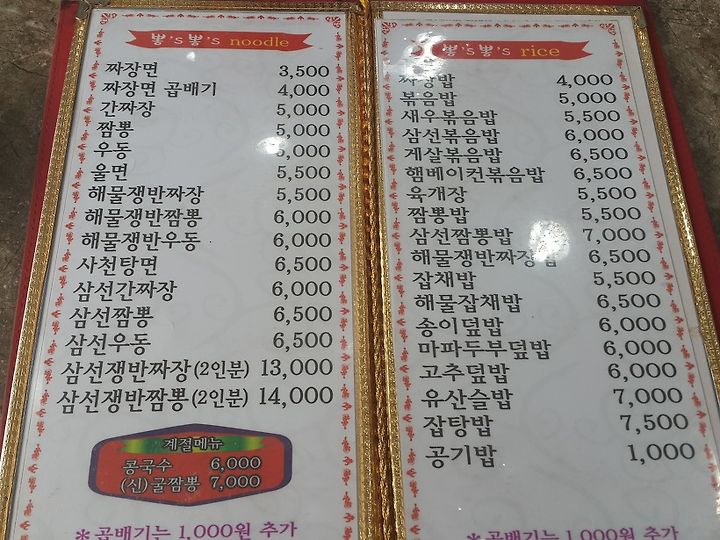 뽕's뽕's noodle
짜장면 3,500
짜장면 곱배기 4,000
간짜장 5,000
짬뽕 5,000
우동 5,000
울면 5,500
해물쟁반짜장 5,500
해물쟁반짬뽕 6,000
해물쟁반우동 6,000
사천탕면 6,500
삼선간짜장 6,000
삼선짬뽕 6,500
삼선우동 6,500
삼선쟁반짜장(2인분) 13,000
삼선쟁반짬뽕(2인분) 14,000
계절메뉴
콩국수 6,000
(신)굴짬뽕 7,000
*곱배기는 1,000원 추가
뽕's뽕's rice
짜장밥 4,000
볶음밥 5,000
새우볶음밥 5,500
삼선볶음밥 6,000
게살볶음밥 6,500
햄베이컨볶음밥 6,500
육개장 5,500
짬뽕밥 5,500
삼선짬뽕밥 7,000
해물쟁반짜장밥 6,500
잡채밥 5,500
해물잡채밥 6,500
송이덮밥 6,000
마파두부덮밥 6,000
고추덮밥 6,000
유산슬밥 7,000
잡탕밥 7,500
공기밥 1,000
*곱배기는 1,000원 추가